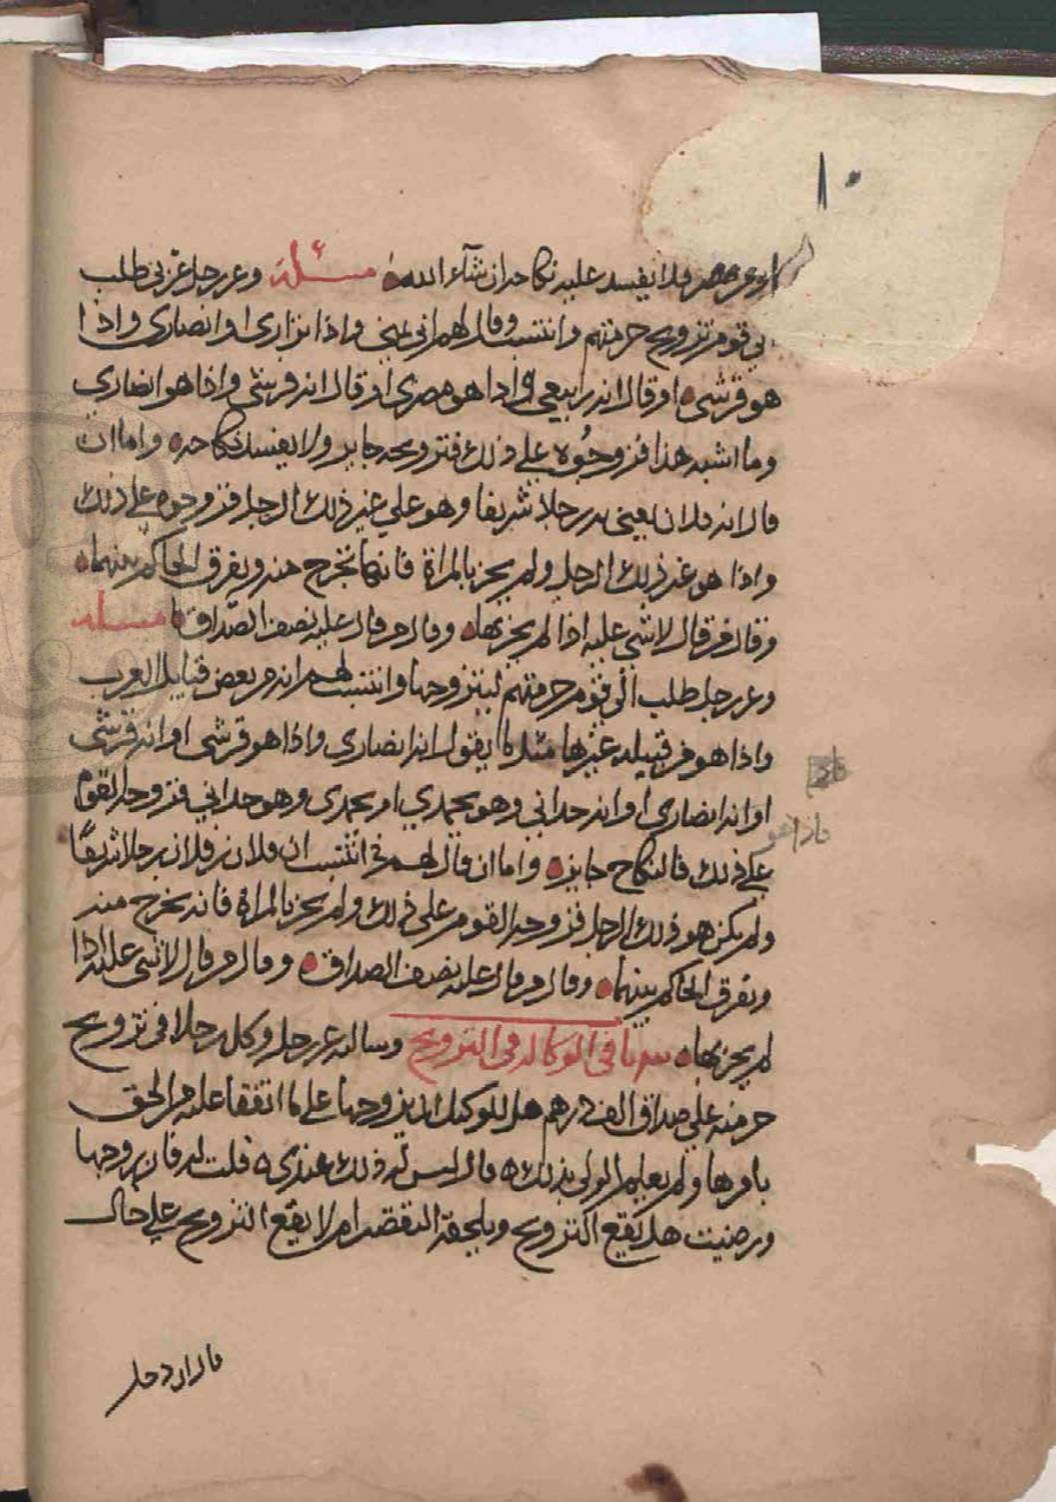 ١٠
فلا يفسد عليه نكاحه ان شاء الله مسئلة وعن رجل عربي طلب
الى قوم تزويج حرمتهم وانتسب وقال لهم اني يمني واذا نزاري او انصاري واذا
هو قرشي او قال انه ربيعي واذا هو مصري او قال انه قرشي واذا هو انصاري
وما اشبه هذا فزوجوه على ذلك فتزويجه جايز ولا يفسد نكاحه واما ان
قال انه فلان يعني به رجلا شريفا وهو على غير ذلك الرجل فزوجوه على ذلك
واذا هو غير ذلك الرجل ولم يجز بالمراة فانها تخرج منه ويفرق الحاكم بينهما
وقال من قال لا شي عليه اذا لم يجز بها وقال من قال عليه نصف الصداق مسئله
وعن رجل طلب الى قوم حرمتهم ليتزوجها وانتسب لهم انه من بعض قبايل العرب
واذا هو من قبيله غيرها مثل ما يقول انه انصاري واذا هو قرشي او انه قرشي
او انه انصاري او انه حداني وهو يحمدي ام يحمدى وهو حداني فزوجه القوم
فاذا هو
على ذلك فالنكاح جايز واما ان قال لهم في انتسب ان فلان بن فلان رجلا شريفا
ولم يكن هو ذلك الرجل فزوجه القوم على ذلك ولم يجز بالمراة فانه يخرج منه
ويفرق الحاكم بينهما وقال من قال عليه نصف الصداق وقال من قال لا شي عليه اذا
لم يجز بها في الوكاله في التزويج وسالته عن رجل وكل رجلا في تزويج
حرمته على صداق الف درهم هل للوكيل ان يزوجها على ما اتفقا عليه من الحق
بامرها ولم يعلم الولى بذلك قال ليس له ذلك عندى قلت له فان زوجها
ورضيت هل يقع التزويج ويلحقه النقصه ام لا يقع التزويج على حال
قال ان دخل